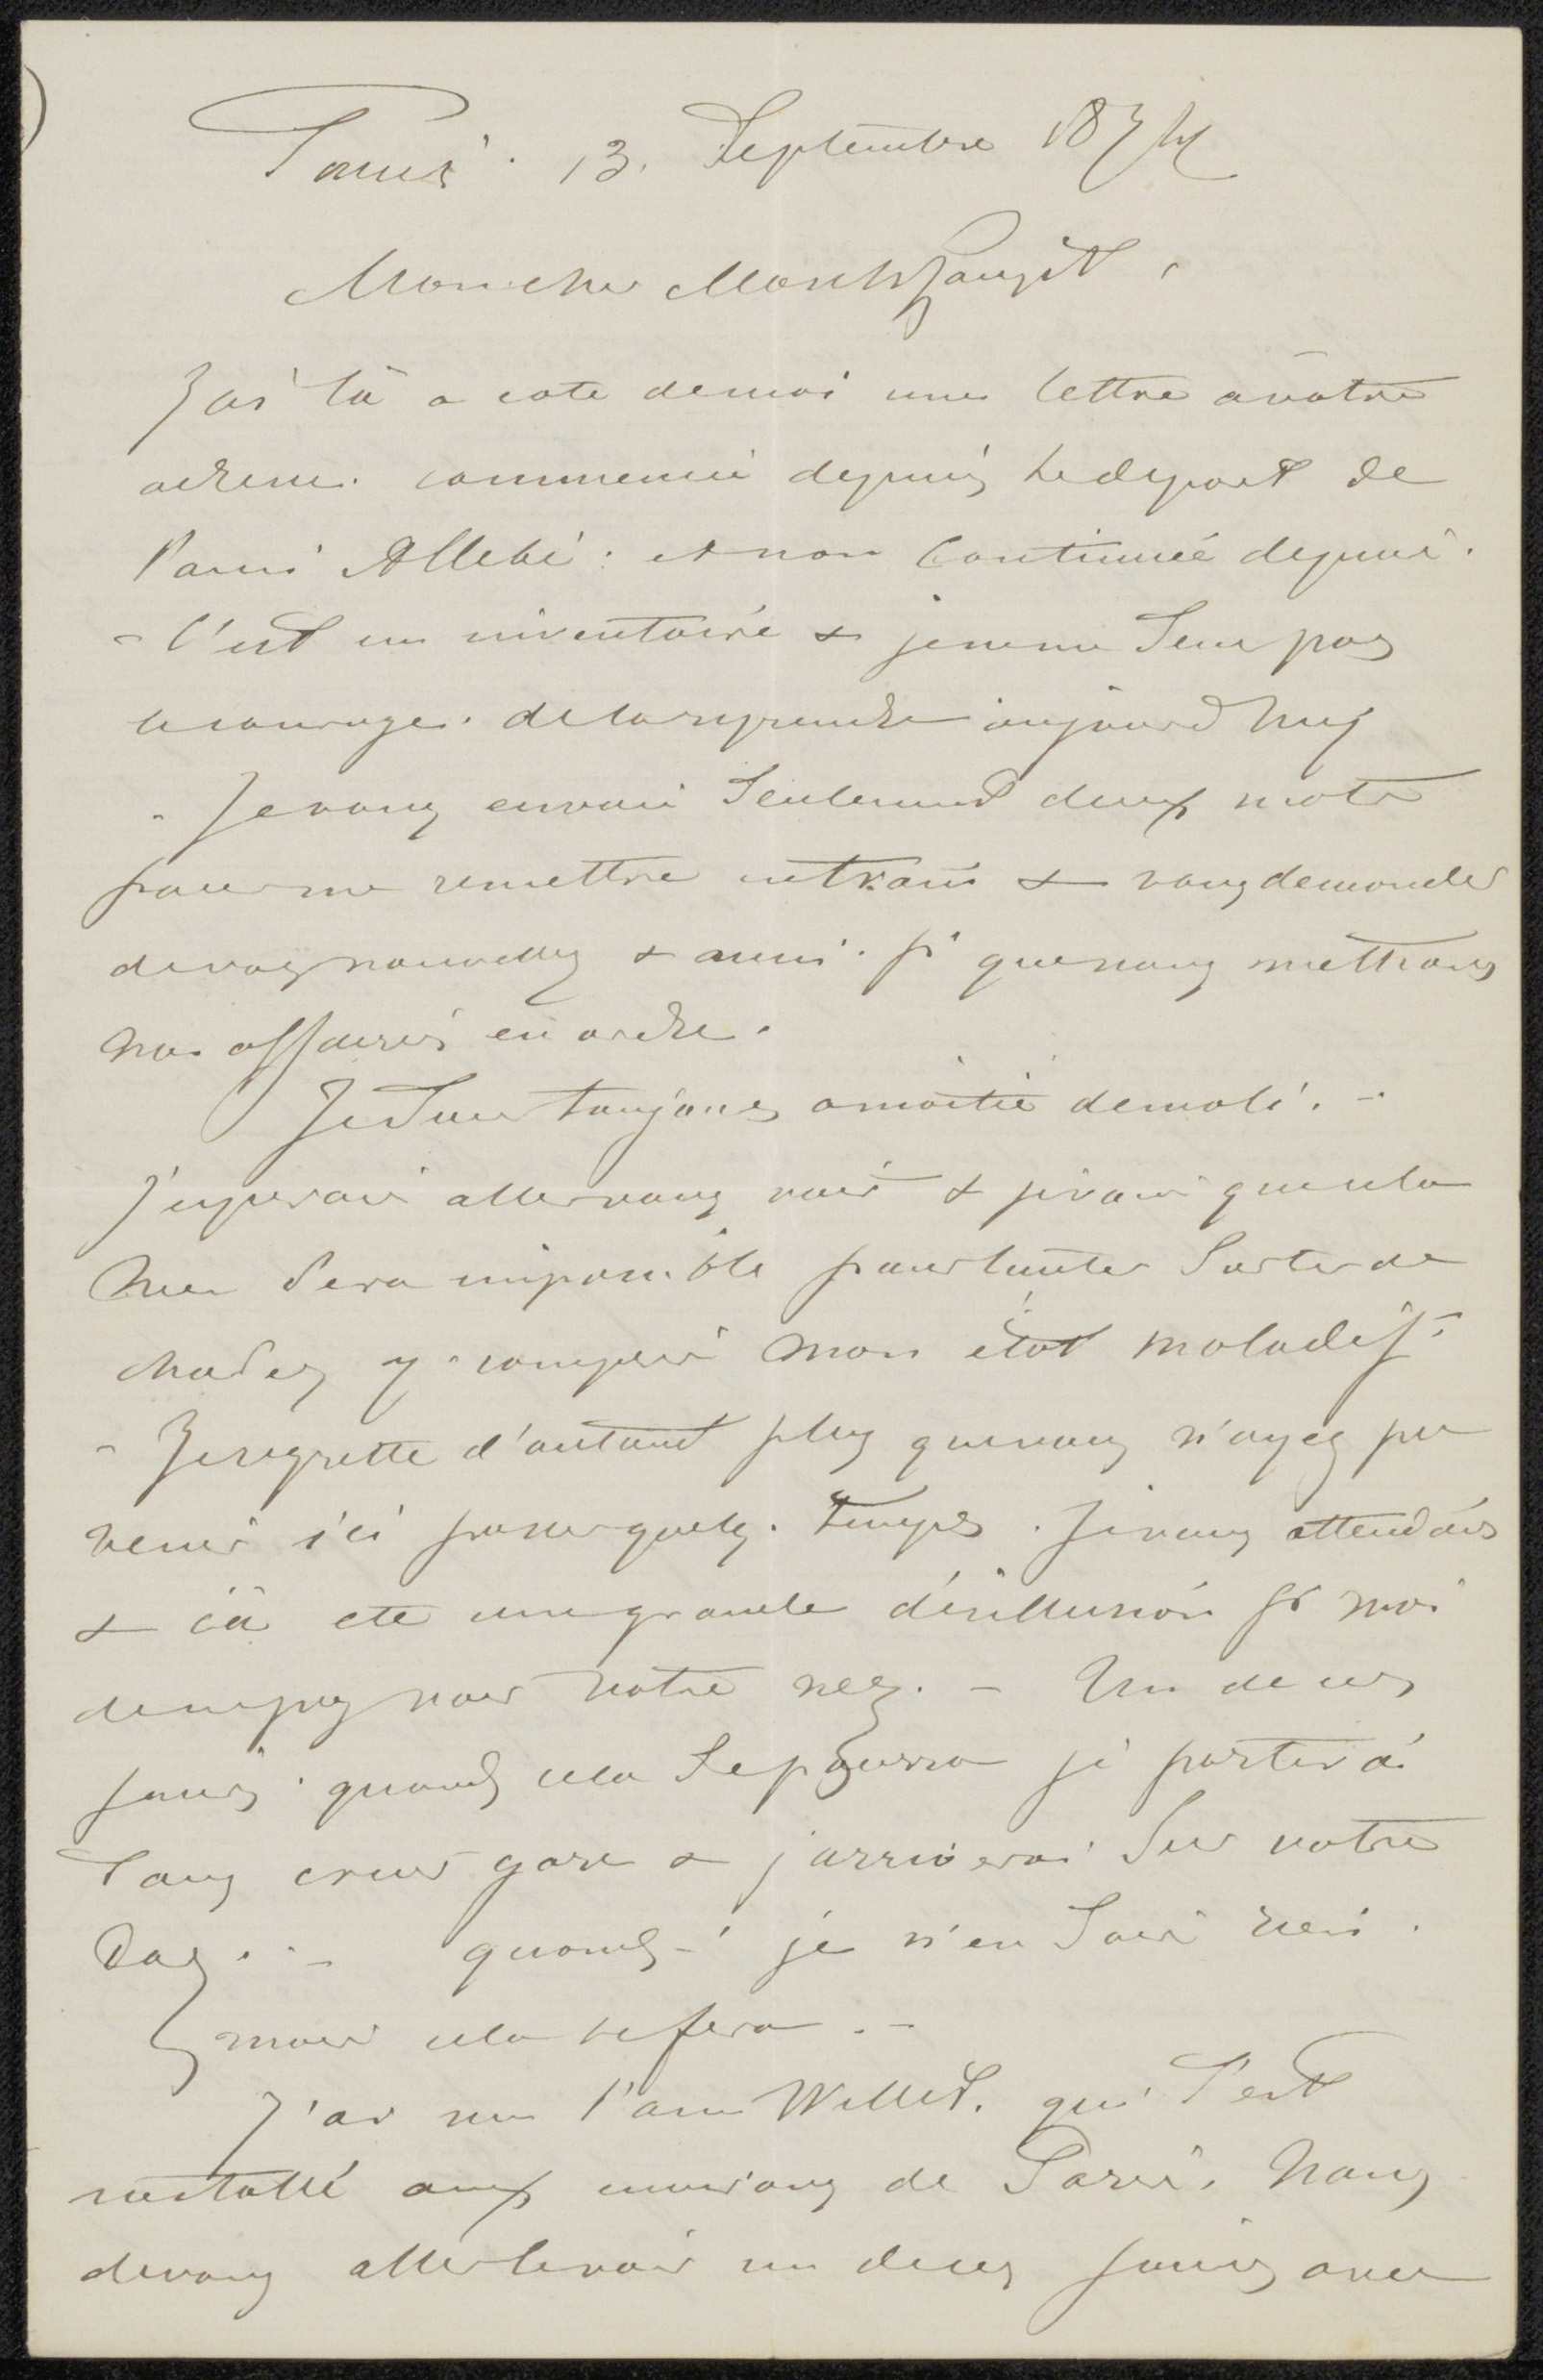 Paris. 13. Septembre 1874
Mon cher Monsh
J'ai là a coté de moi une lettre à votre
adresse. commencée depuis le départ de
l'ami Allebé : et non continuée depuis.
- C'est un inventaire & je ne me sens pas
le courage. de la reprendre aujourd'huy
. Je vous envoie seulement deux mots
pour me remettre en train & vous demander
de vos nouvelles & aussi. pr que nous mettions
nos affaires en ordre.
Je suis toujours a moitié demoli. -
J'esperais aller vous voir & je vois que cela
me sera impossible pour toutes sortes de
choses y compris mon état maladif.
- Je regrette d'autant plus que vous n'ayez pu
venir ici passer quelq. temps. Je vous attendais
& ça été une grande désillusion pr moi
de ne pas voir votre nez. - Un de ces
jours. quand cela se pourra je partirai
sans crier gare & j'arriverai sur votre
dos. - quand - je n'en sais rien.
mais cela se fera. -
J'ai vu l'ami Willet. qui s'est
installé aux environs de Paris. Nous
devons aller le voir un de ces jours avec